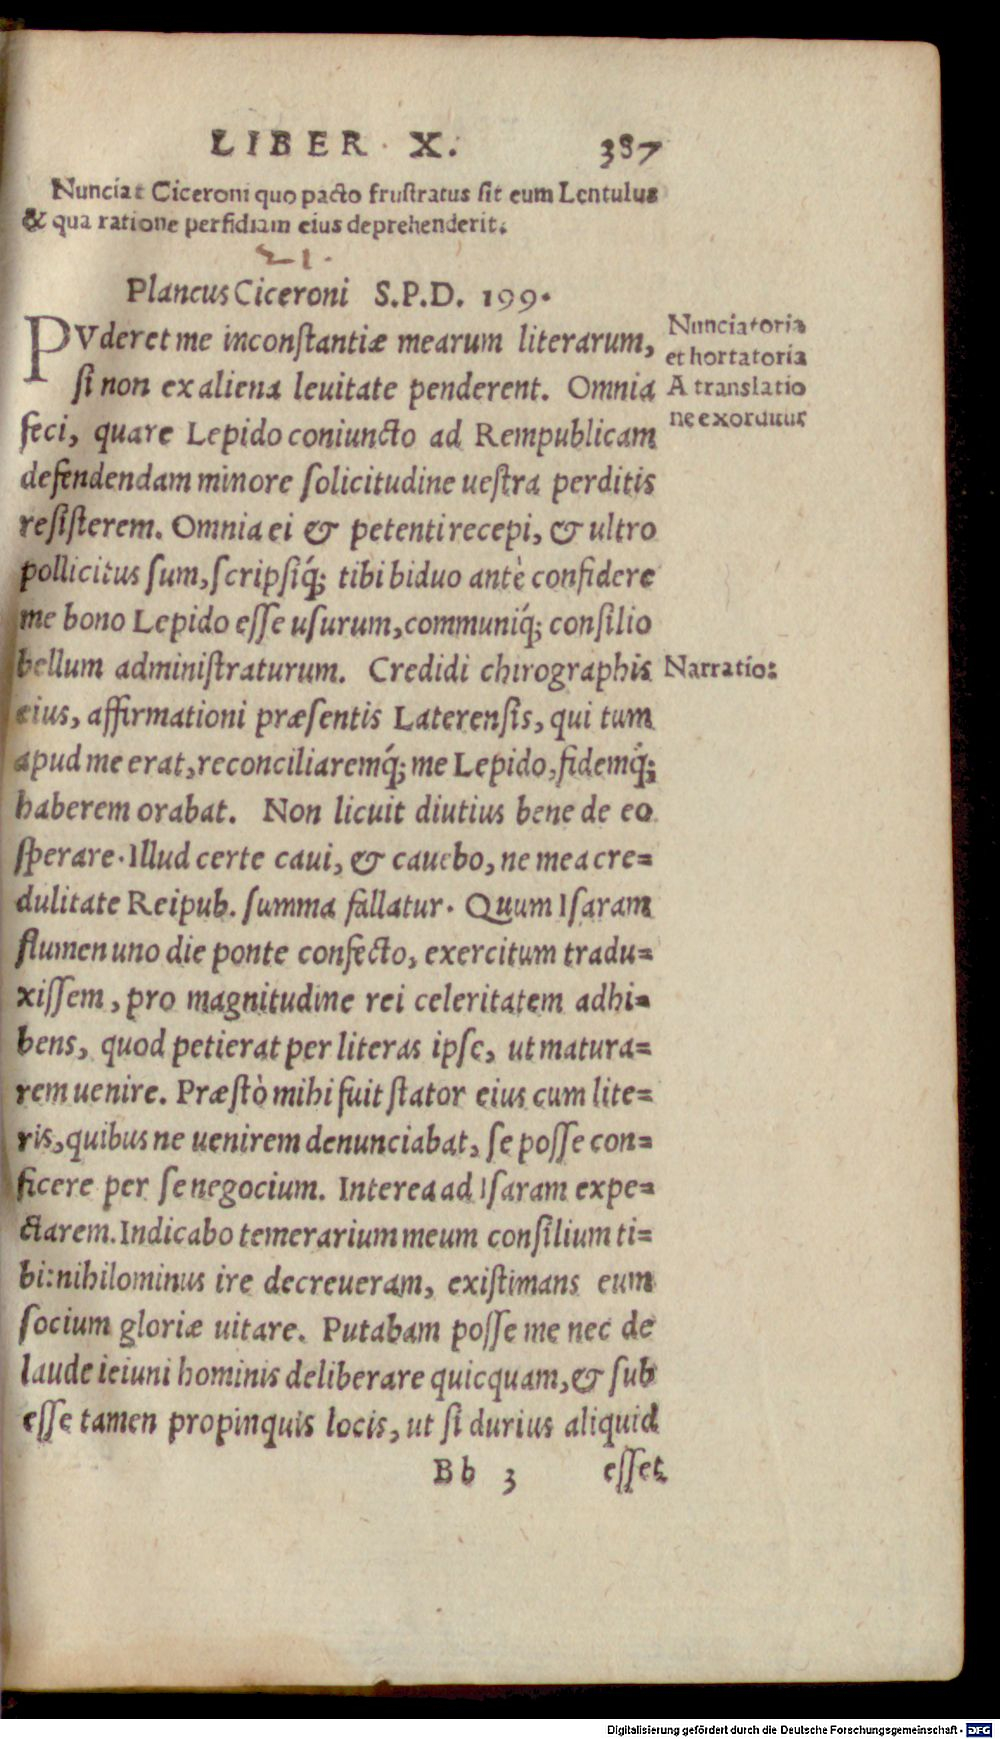 LIBER X. 387
Nunciat Ciceroni quo pacto frustratus sit eum Lentulus
& qua ratione perfidiam eius deprehenderit.
21.
Plancus Ciceroni S.P.D. 199.
PVderet me inconstantiæ mearum literarum,
si non ex aliena leuitate penderent. Omnia
feci, quare Lepido coniuncto ad Rempublicam
defendendam minore solicitudine uestra perditis
resisterem. Omnia ei & petenti recepi, & ultro
pollicitus sum, scripsiq́; tibi biduo antè confidere
me bono Lepido esse usurum, communiq́; consilio
bellum administraturum. Credidi chirographis
eius, affirmationi præsentis Laterensis, qui tum
apud me erat, reconciliaremq́; me Lepido, fidemq́;
haberem orabat. Non licuit diutius bene de eo
sperare. Illud certe caui, & cauebo, ne mea cre=
dulitate Reipub. summa fallatur. Quum Isaram
flumen uno die ponte confecto, exercitum tradu=
xissem, pro magnitudine rei celeritatem adhi=
bens, quod petierat per literas ipse, ut matura=
rem uenire. Præstò mihi fuit stator eius cum lite=
ris, quibus ne uenirem denunciabat, se posse con=
ficere per se negocium. Interea ad Isaram expe=
ctarem. Indicabo temerarium meum consilium ti=
bi: nihilominus ire decreueram, existimans eum
socium gloriæ uitare. Putabam posse me nec de
laude ieiuni hominis deliberare quicquam, & sub
esse tamen propinquis locis, ut si durius aliquid
Bb 3 esset
Nunciatoria
et hortatoria
A translatio
ne exorditur
Narratio:
Digitalisierung gefördert durch die Deutsche Forschungsgemeinschaft - DFG